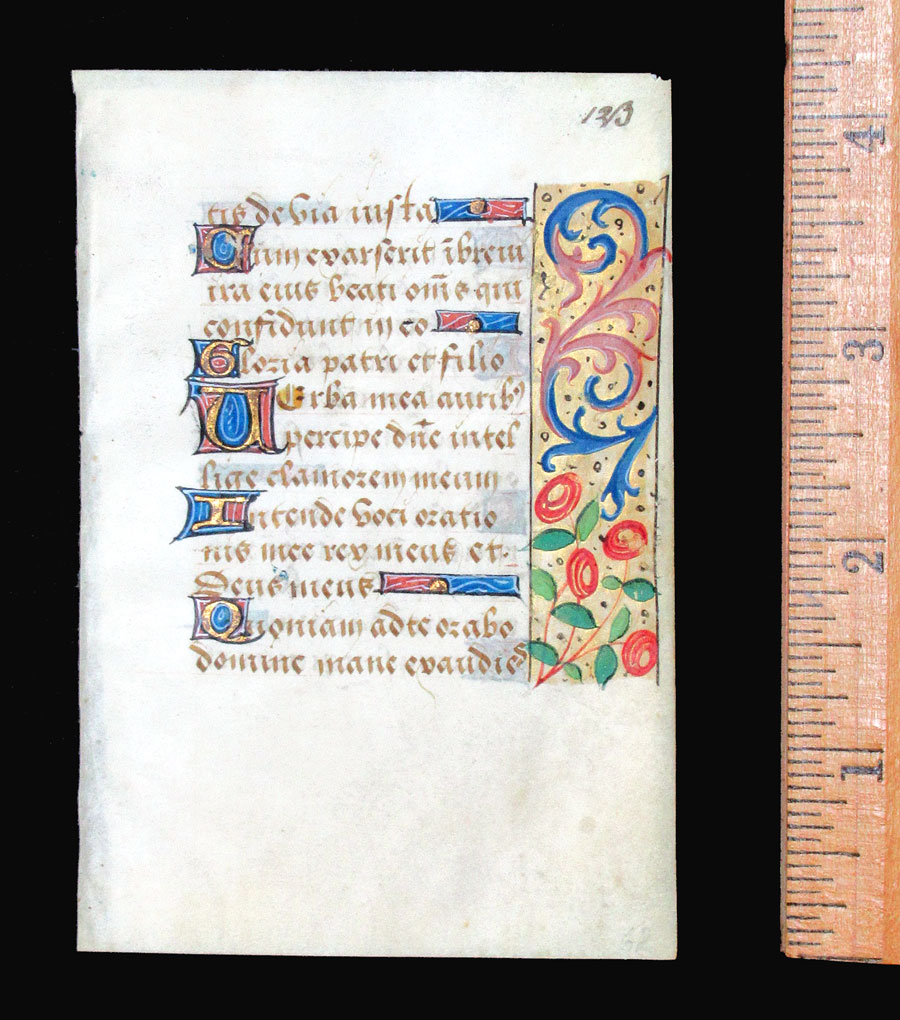 133
tis de via iusta
Cum exarserit ībreui
ira eius beati om̄s qui
confidunt in eo
Gloria patri et filio
UErba mea aurib9
percipe dn̄e intel
lige clamorem meum
Intende voci oratio
nis mee rex meus et
deus meus
Quoniam ad te orabo
domine mane exaudies
4
3
2
1